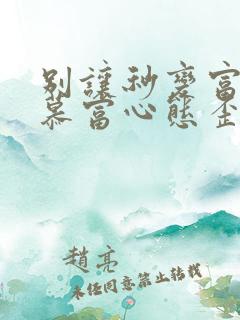 別讓秒變富
慕富心態歪
趙亮
未经同意禁止转载